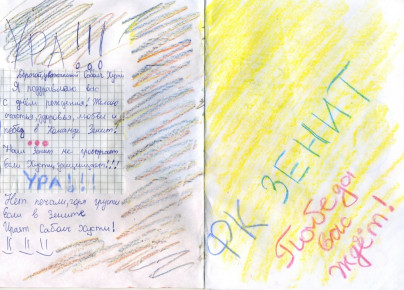 УРА!!!
Дорогой, уважаемый Сабас Хусти
Я поздравляю вас
с днём рождения! Желаю
счастья, здоровья, любви и
побед в команде Зенит!
Наш Зенит не
вам Хусти, защищает!!!
УРА!!!
Нет печали, горя, грусти
вам в Зените
Сабас Хусти!
ФК ЗЕНИТ
Победа
вас
ждёт!